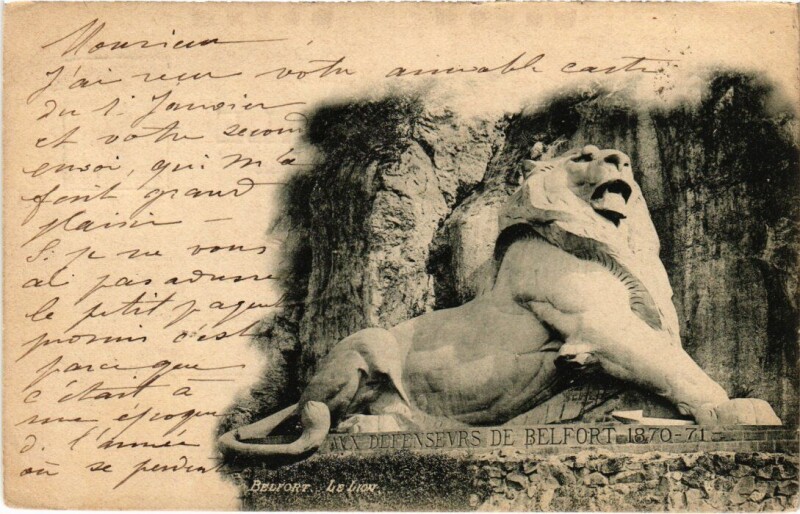 Monsieur
J'ai reçu votre aimable carte
du 1r Janvier
et votre second
envoi, qui m'a
fait grand
plaisir -
Si je ne vous
ai pas adressé
le petit paquet
promis c'est
parce que
c'était à
une époque
de l'année
où se perdent
AVX DEFENSEVRS DE BELFORT 1870-71
BELFORT. LE LION.